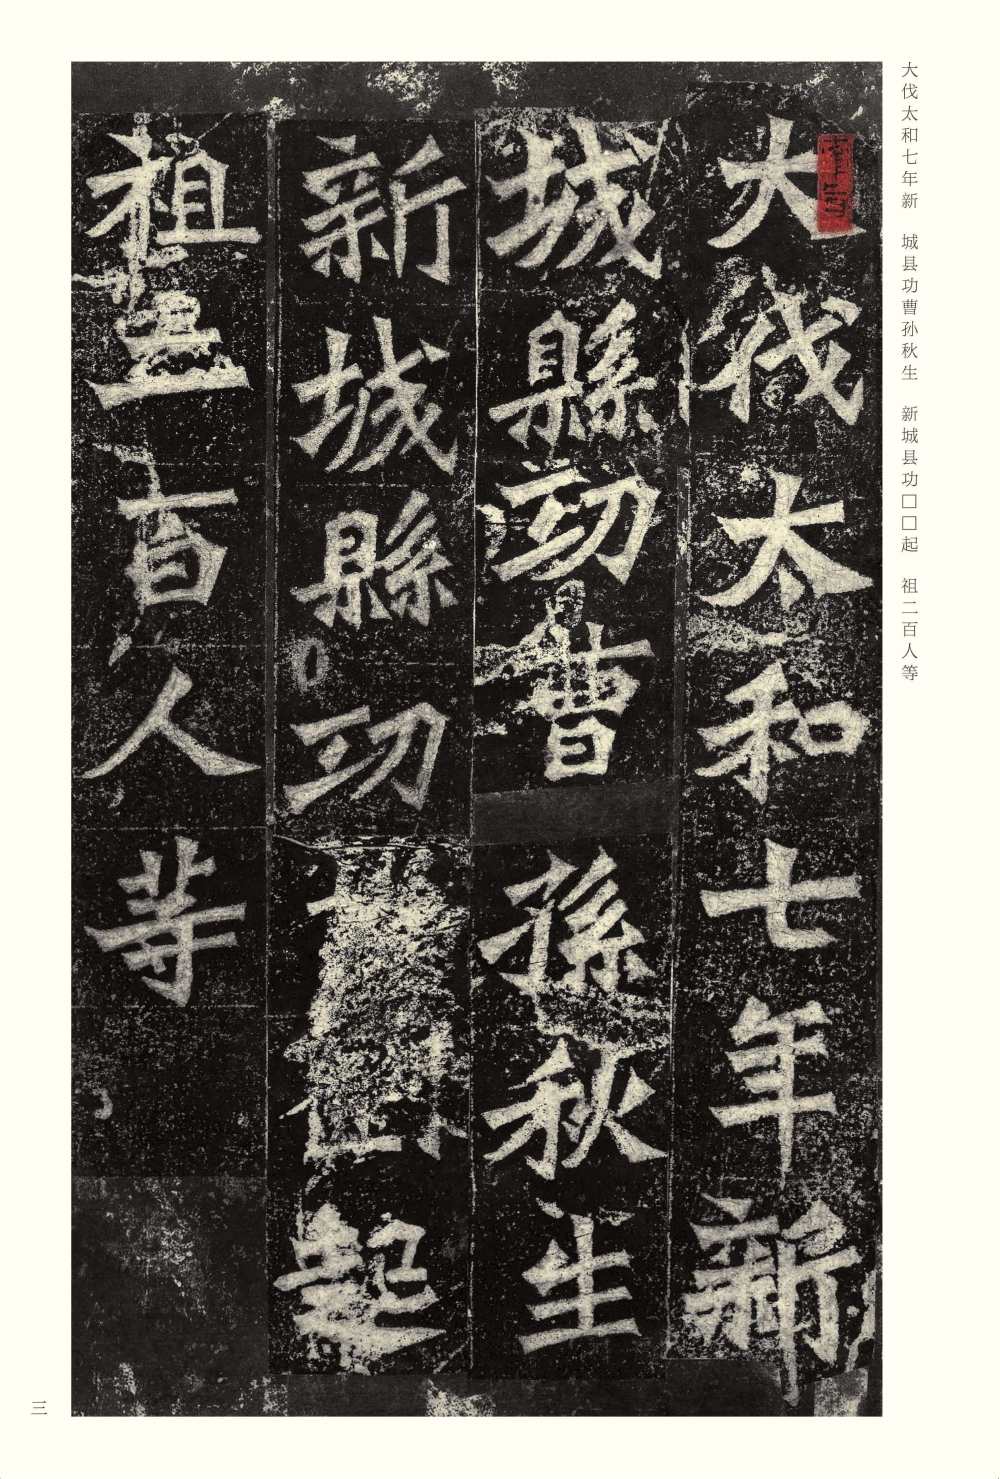 大伐太和七年新
城縣功曹孫秋生
新城縣功起
祖二百人等
大伐太和七年新　城县功曹孙秋生　新城县功□□起　祖二百人等
三